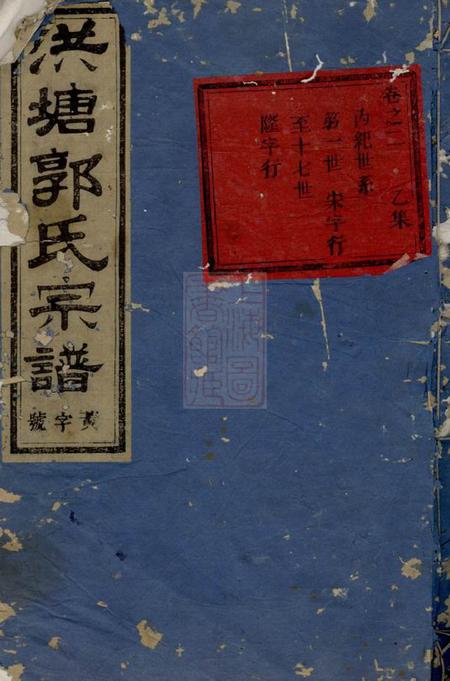 洪塘郭氏宗譜
黃字號
卷之二 乙集
內紀世系
第一世 宋字行
至十七世
陞字行
上海圖書館藏